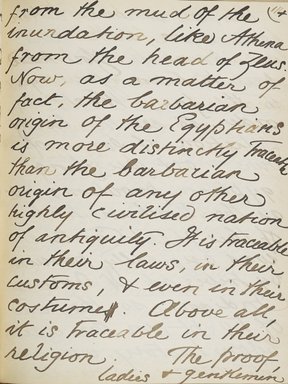 from the mud of the
inundation, like Athena
from the head of Zeus.
Now, as a matter of
fact, the barbarian
origin of the Egyptians
is more distinctly traceable
than the barbarian
origin of any other
highly civilised nation
of antiquity. It is traceable
in their laws, in their
customs, & even in their
costume. Above all,
it is traceable in their
religion. The proof
ladies & gentlemen